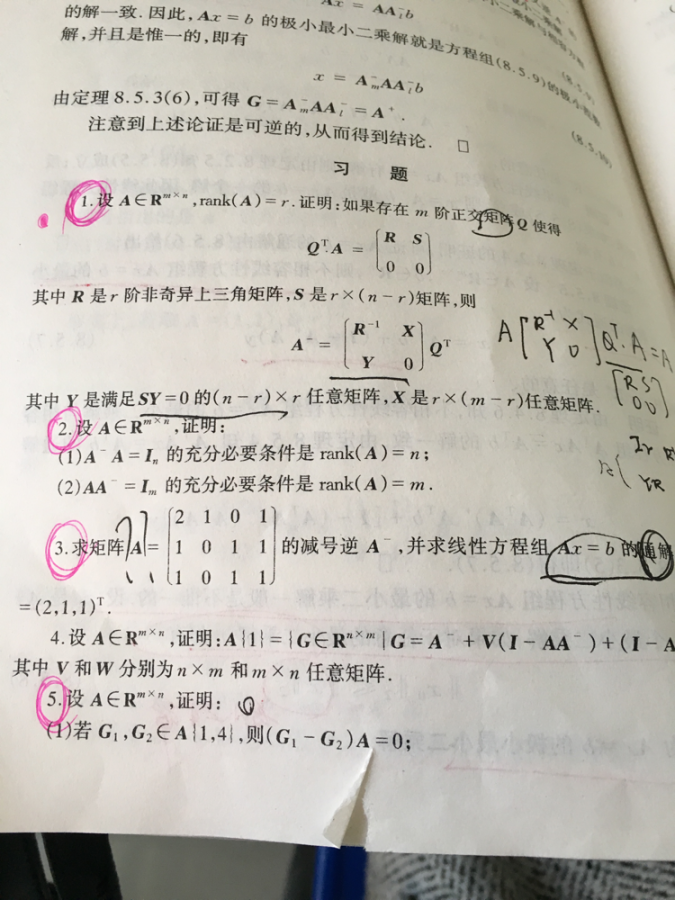 Ax = AA_l^-b
的解一致. 因此, Ax = b 的极小最小二乘解就是方程组(8.5.9)的极小
解, 并且是惟一的, 即有
x = A_m^-AA_l^-b
(8.5.10)
由定理 8.5.3(6), 可得 G = A_m^-AA_l^- = A^+.
注意到上述论证是可逆的, 从而得到结论. □
习 题
1. 设 A∈R^{m×n}, rank(A) = r. 证明: 如果存在 m 阶正交矩阵 Q 使得
Q^T A = [R S; 0 0]
其中 R 是 r 阶非奇异上三角矩阵, S 是 r×(n-r)矩阵, 则
A^- = [R^{-1} X; Y 0] Q^T
A [R^{-1} X; Y 0] Q^T·A = A
[R S; 0 0]
其中 Y 是满足 SY = 0 的(n-r)×r 任意矩阵, X 是 r×(m-r)任意矩阵.
2. 设 A∈R^{m×n}, 证明:
(1) A^- A = I_n 的充分必要条件是 rank(A) = n;
(2) AA^- = I_m 的充分必要条件是 rank(A) = m.
3. 求矩阵 A = [2 1 0 1; 1 0 1 1; 1 0 1 1] 的减号逆 A^-, 并求线性方程组 Ax = b 的通解
= (2,1,1)^T.
4. 设 A∈R^{m×n}, 证明: A{1} = {G∈R^{n×m} | G = A^- + V(I - AA^-) + (I - A
其中 V 和 W 分别为 n×m 和 m×n 任意矩阵.
5. 设 A∈R^{m×n}, 证明:
(1) 若 G_1, G_2∈A{1,4}, 则(G_1 - G_2)A = 0;